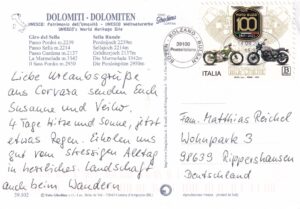 DOLOMITI - DOLOMITEN
UNESCO - Patrimonio dell'Umanità - UNESCO - Weltnaturerbe
UNESCO's World Heritage Site
Giro del Sella Sella Ronde
Passo Pordoi m.2239 Pordoijoch 2239m
Passo Sella m.2214 Sellajoch 2214m
Passo Gardena m.2137 Grödnerjoch 2137m
La Marmolada m.3342 Die Marmolada 3342m
Il Sass Pordoi m.2950 Der Sass Pordoi 2950m
100
39100
ITALIA
B
Liebe Urlaubsgrüße
aus Corvara senden Euch
Susanne und Veiko.
4 Tage Hitze und Sonne, jetzt
etwas Regen. Erholen uns
gut vom stressigen Alltag
in herrlicher Landschaft
auch beim Wandern
Fam. Matthias Reichel
Wohnpark 3
98639 Rippershausen
Deutschland